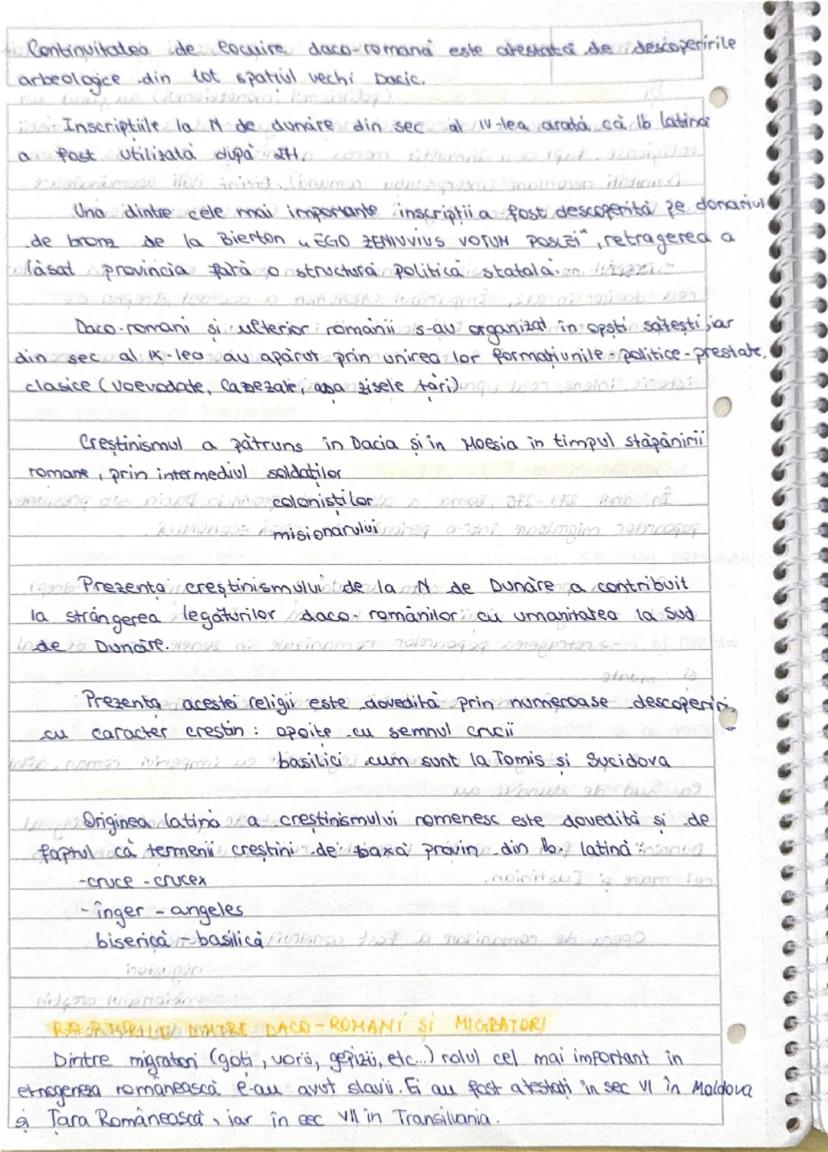 Continuitatea de locuire daco-romană este atestată de descoperirile
arheologice din tot spațiul vechi Dacic.
Inscripțiile la N de dunăre din sec al IV-lea arată că lb latină
a fost utilizată după 271.
Una dintre cele mai importante inscripții a fost descoperită pe donariul
de bronz de la Bierton „EGO ZENUVIUS VOTUM POSUEI", retragerea a
lăsat provincia fără o structură politică statală.
Daco-romani și ulterior românii s-au organizat în opști sătești, iar
din sec al IX-lea au apărut prin unirea lor formațiunile-politice-prestate,
clasice (Voevodate, Cabezate, așa zisele țări)
Creștinismul a pătruns în Dacia și în Moesia în timpul stăpânirii
romane, prin intermediul soldaților
coloniștilor
misionarului
Prezența creștinismului de la N de Dunăre a contribuit
la strângerea legăturilor daco-românilor cu umanitatea la Sud
de Dunăre.
Prezența acestei religii este dovedită prin numeroase descoperiri
cu caracter creștin: apoite cu semnul crucii
basilici cum sunt la Tomis și Sucidova
Originea latină a creștinismului romenesc este dovedită și de
faptul că termenii creștini de bază provin din lb latină:
-cruce - crucex
- înger - angeles
biserică - basilică
RAPORTURILE DINTRE DACO-ROMANI ȘI MIGRATORI
Dintre migratori (goți, vară, gepizii, etc...) rolul cel mai important în
etnogeneza românească l-au avut slavii. Ei au fost atestați în sec VI în Moldova
și Țara Românească, iar în sec VII în Transilvania.